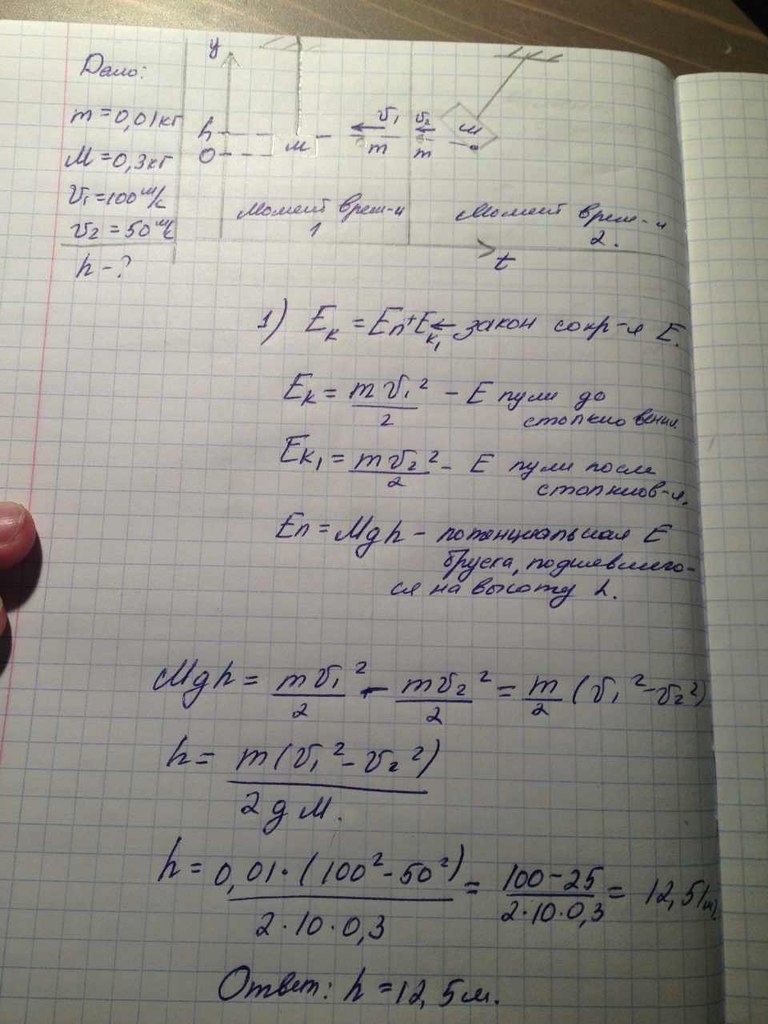 Дано:
m = 0,01 кг
M = 0,3 кг
v₁ = 100 м/с
v₂ = 50 м/с
h - ?
y
h
0
M
v₁
m
v₂
m
M
Момент врем-и
1
Момент врем-и
2.
t
1) Eк = Eп + Eк₁ ← закон сохр-я E.
Eк = mv₁²/2 - E пули до
столкновения
Eк₁ = mv₂²/2 - E пули после
столкнов-я.
Eп = Mgh - потенциальная E
бруска, поднявшего-
ся на высоту h.
Mgh = mv₁²/2 - mv₂²/2 = m/2 (v₁² - v₂²)
h = m(v₁² - v₂²)/2gM.
h = 0,01·(100² - 50²)/2·10·0,3 = 100-25/2·10·0,3 = 12,5 (м)
Ответ: h = 12,5 м.